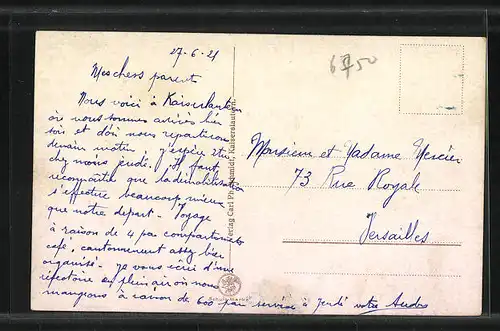 27-6-21
Mes chers parents
Nous voici à Kaiserlautern
où nous sommes arrivés hier
soir et d'où nous repartirons
demain matin, j'espère être
chez moi jeudi. Il faut
reconnaître que la démobilisation
s'effectue beaucoup mieux
que notre départ - Voyage
à raison de 4 par compartiments
café, cantonnement assez bien
organisé - Je vous écris d'une
réfectoire en plein air où nous
mangeons à raison de 600 par service à jeudi votre
6750
Verlag Carl Ph. Schmidt, Kaiserslautern.
Monsieur et Madame Mercier
73 Rue Royale
Versailles